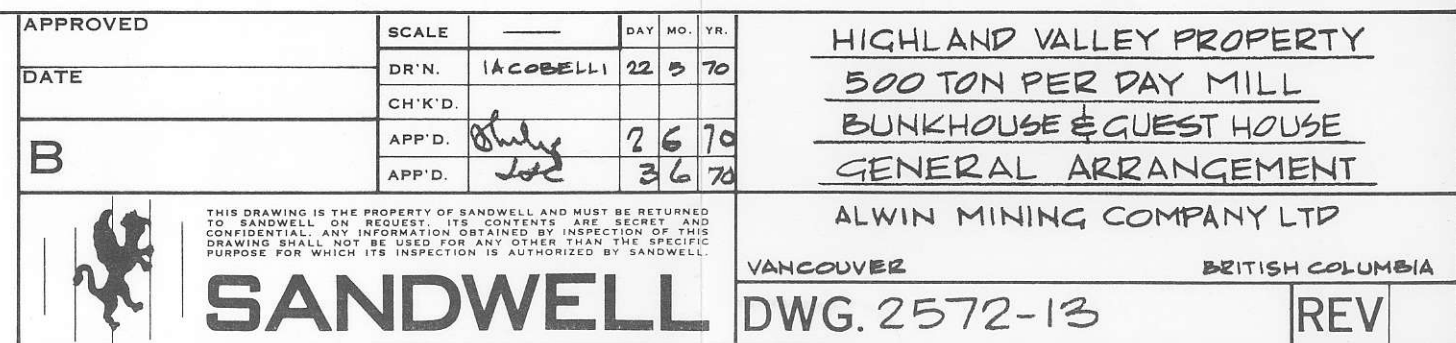 APPROVED
DATE
B
SCALE —— DAY MO. YR.
DR'N. IACOBELLI 22 5 70
CH'K'D.
APP'D. 2 6 70
APP'D. 3 6 70
HIGHLAND VALLEY PROPERTY
500 TON PER DAY MILL
BUNKHOUSE & GUEST HOUSE
GENERAL ARRANGEMENT
THIS DRAWING IS THE PROPERTY OF SANDWELL AND MUST BE RETURNED
TO SANDWELL ON REQUEST. ITS CONTENTS ARE SECRET AND
CONFIDENTIAL. ANY INFORMATION OBTAINED BY INSPECTION OF THIS
DRAWING SHALL NOT BE USED FOR ANY OTHER THAN THE SPECIFIC
PURPOSE FOR WHICH ITS INSPECTION IS AUTHORIZED BY SANDWELL.
SANDWELL
ALWIN MINING COMPANY LTD
VANCOUVER BRITISH COLUMBIA
DWG. 2572-13 REV